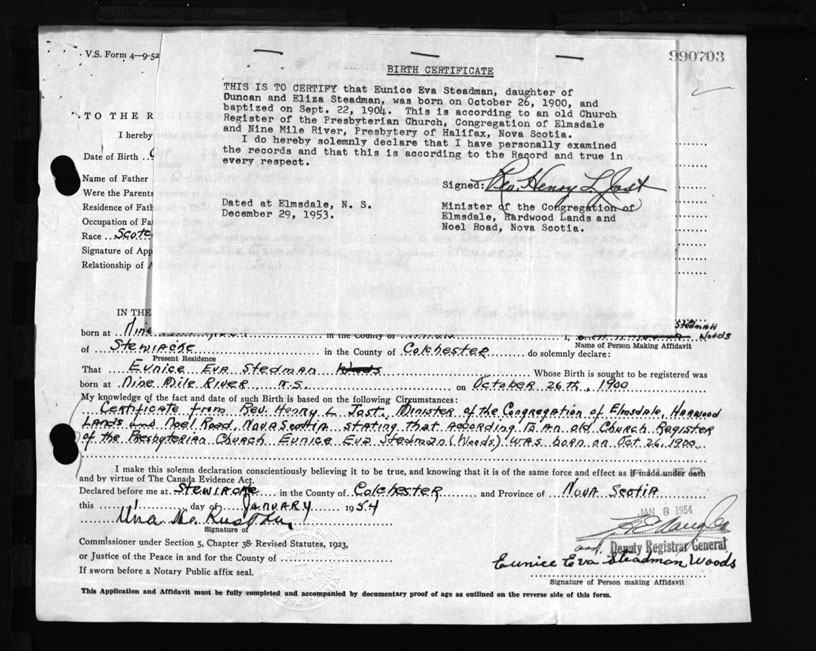 V.S. Form 4—9-52
990703
BIRTH CERTIFICATE
THIS IS TO CERTIFY that Eunice Eva Steadman, daughter of
Duncan and Eliza Steadman, was born on October 26, 1900, and
baptized on Sept. 22, 1904. This is according to an old Church
Register of the Presbyterian Church, Congregation of Elmsdale
and Nine Mile River, Presbytery of Halifax, Nova Scotia.
I do hereby solemnly declare that I have personally examined
the records and that this is according to the Record and true in
every respect.
Signed: Rev. Henry L. Jost
Dated at Elmsdale, N. S.
December 29, 1953.
Minister of the Congregation of
Elmsdale, Hardwood Lands and
Noel Road, Nova Scotia.
TO THE R
I hereby
Date of Birth
Name of Father
Were the Parents
Residence of Fath
Occupation of Fa
Race Scotc
Signature of App
Relationship of A
IN THE
born at Nine in the County of I, Stedman Woods
Name of Person Making Affidavit
of Stewiacke in the County of Colchester do solemnly declare:
Present Residence
That Eunice Eva Stedman Woods Whose Birth is sought to be registered was
born at Nine Mile River N.S. on October 26th, 1900
My knowledge of the fact and date of such Birth is based on the following Circumstances:
Certificate from Rev. Henry L. Jost, Minister of the Congregation of Elmsdale, Harwood
Lands and Noel Road, Nova Scotia stating that according to an old Church Register
of the Presbyterian Church Eunice Eva Stedman (Woods) was born on Oct 26, 1900
I make this solemn declaration conscientiously believing it to be true, and knowing that it is of the same force and effect as if made under oath
and by virtue of The Canada Evidence Act.
Declared before me at Stewiacke in the County of Colchester and Province of Nova Scotia
this day of January 1954
JAN 8 1954
Signature of
Deputy Registrar General
Commissioner under Section 5, Chapter 38 Revised Statutes, 1923,
or Justice of the Peace in and for the County of
Eunice Eva Steadman Woods
If sworn before a Notary Public affix seal.
Signature of Person making Affidavit
This Application and Affidavit must be fully completed and accompanied by documentary proof of age as outlined on the reverse side of this form.